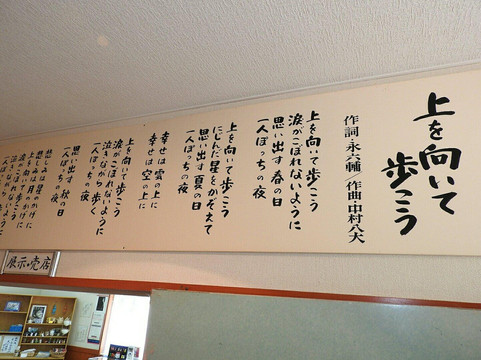 上を向いて
歩こう
作詞・永六輔/作曲・中村八大
上を向いて歩こう
涙がこぼれないように
思い出す春の日
一人ぼっちの夜
上を向いて歩こう
にじんだ星をかぞえて
思い出す夏の日
一人ぼっちの夜
幸せは雲の上に
幸せは空の上に
上を向いて歩こう
涙がこぼれないように
泣きながら歩く
一人ぼっちの夜
思い出す秋の日
一人ぼっちの夜
悲しみは星のかげに
悲しみは月のかげに
上を向いて歩こう
涙がこぼれないように
泣きながら歩く
一人ぼっちの夜
展示・売店